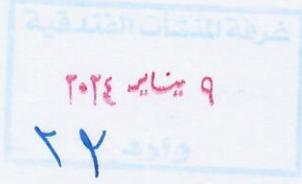 غرفة المنشآت الفندقية
٩ يناير ٢٠٢٤
وارد
٢٧